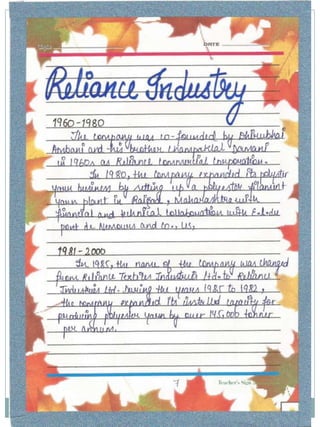 DATE
Reliance Industry
1960-1980
The company was co-founded by Dhirubhai
Ambani and his brother Champaklal Damani
in 1960s as Reliance commercial corporation.
In 1980, the company expanded its polyster
yarn business by setting up a polyester filament
yarn plant in Raigad, Maharashtra with
financial and technical collaboration with E.I. du
pont de Nemours and co., US,
1981-2000
In 1985, the name of the company was changed
from Reliance Textiles Industries Ltd. to Reliance
Industries Ltd. During the years 1985 to 1992,
the company expanded its installed capacity for
producing polyester yarn by over 145,000 tonner
per annum.
7
Teacher's Sign